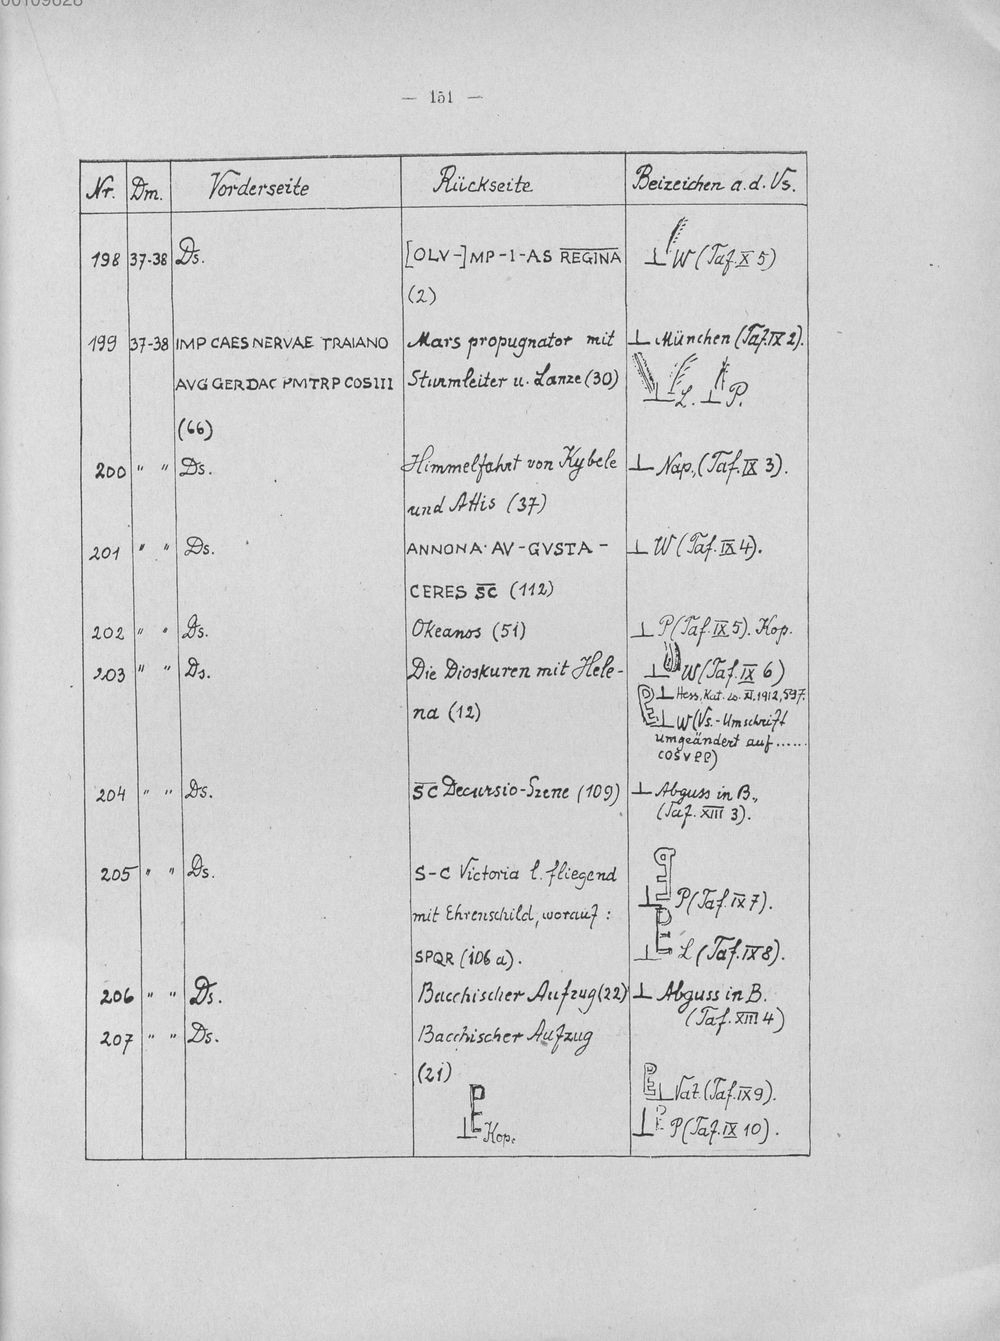 00109828
— 151 —
Nr. Dm. Vorderseite Rückseite Beizeichen a.d. Vs.
198 37-38 Ds. [OLV-]MP-I-AS REGINA ⊥ W (Taf. X 5)
(2)
199 37-38 IMP CAES NERVAE TRAIANO Mars propugnator mit ⊥ München (Taf. IX 2).
AVG GER DAC PM TR P COS III Sturmleiter u. Lanze (30) ⊥ L. ⊥ P.
(66)
200 " " Ds. Himmelfahrt von Kybele ⊥ Nap., (Taf. IX 3).
und Attis (37)
201 " " Ds. ANNONA·AV-GVSTA- ⊥ W (Taf. IX 4).
CERES SC (112)
202 " " Ds. Okeanos (51) ⊥ P (Taf. IX 5). Kop.
203 " " Ds. Die Dioskuren mit Hele- ⊥ W (Taf. IX 6)
na (12) PE ⊥ Hess, Kat. Lo. XI. 1912, 597.
PE ⊥ W (Vs.-Umschrift
umgeändert auf ......
COS V PP)
204 " " Ds. SC Decursio-Szene (109) ⊥ Abguss in B.,
(Taf. XIII 3).
205 " " Ds. S-C Victoria l. fliegend
mit Ehrenschild, worauf: ⊥ PE P (Taf. IX 7).
SPQR (106 a). ⊥ PE L (Taf. IX 8).
206 " " Ds. Bacchischer Aufzug (22) ⊥ Abguss in B.
(Taf. XIII 4)
207 " " Ds. Bacchischer Aufzug
(21) PE ⊥ Vat. (Taf. IX 9).
⊥ PE Kop. ⊥ PE P (Taf. IX 10).